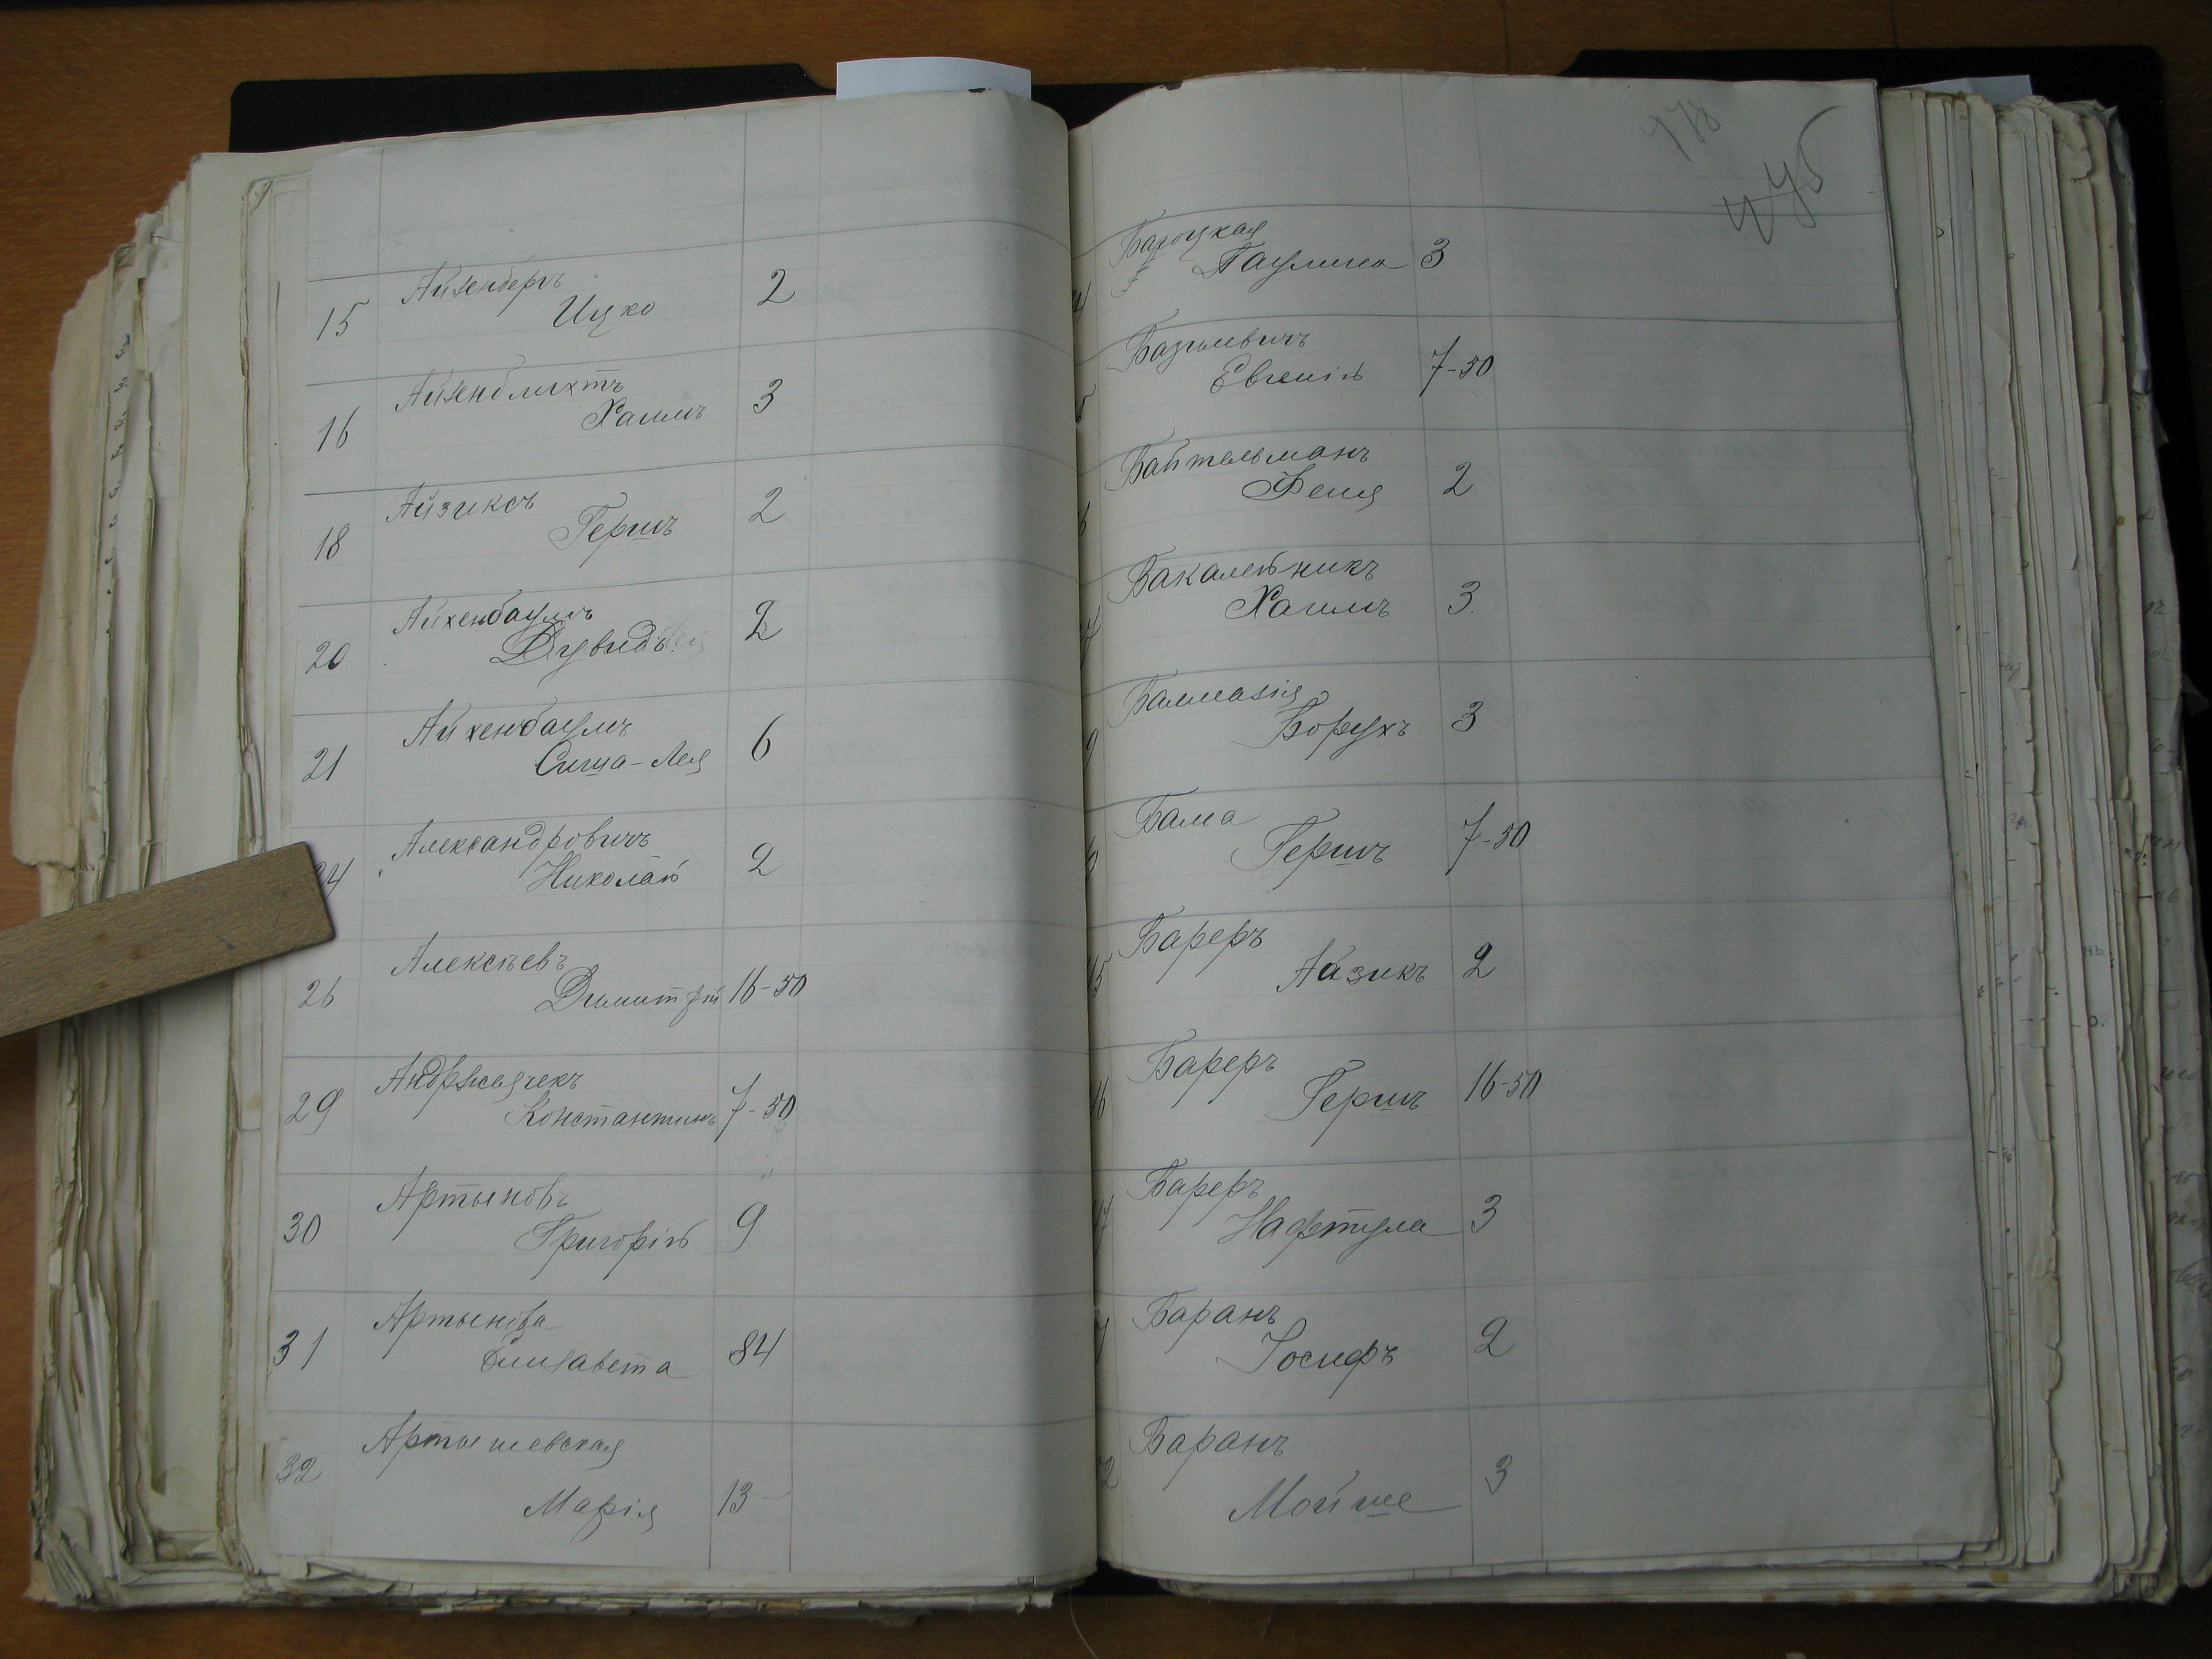 15 Айзенбергъ
Ицко 2
16 Айзенблихтъ
Хаимъ 3
18 Айзиксъ
Гершъ 2
20 Айхенбаумъ
Дувидъ 2
21 Айхенбаумъ
Сиша-Лея 6
24 Александровичъ
Николай 2
26 Алексѣевъ
Димитрій 16-50
29 Андржеячекъ
Константинъ 7-50
30 Артыновъ
Григорій 9
31 Артынова
Елизавета 84
32 Артышевская
Марія 13-
475
Багоцкая
Паулина 3
Базилевичъ
Евгеній 7-50
Байтельманъ
Феня 2
Бакалейникъ
Хаимъ 3.
Балмазія
Борухъ 3
Бама
Гершъ 7-50
Бареръ
Айзикъ 2
Бареръ
Гершъ 16-50
Бареръ
Нафтула 3
Баранъ
Іосифъ 2
Баранъ
Мойше 3